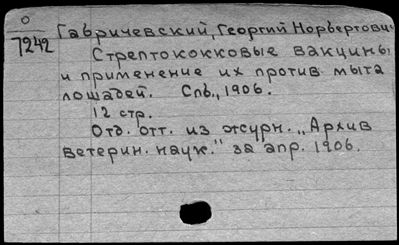 О
7242
Габричевский, Георгий Норбертович
Стрептококковые вакцины
и применение их против мыта
лошадей. Спб., 1906.
12 стр.
Отд. отт. из журн. „Архив
ветерин. наук." за апр. 1906.